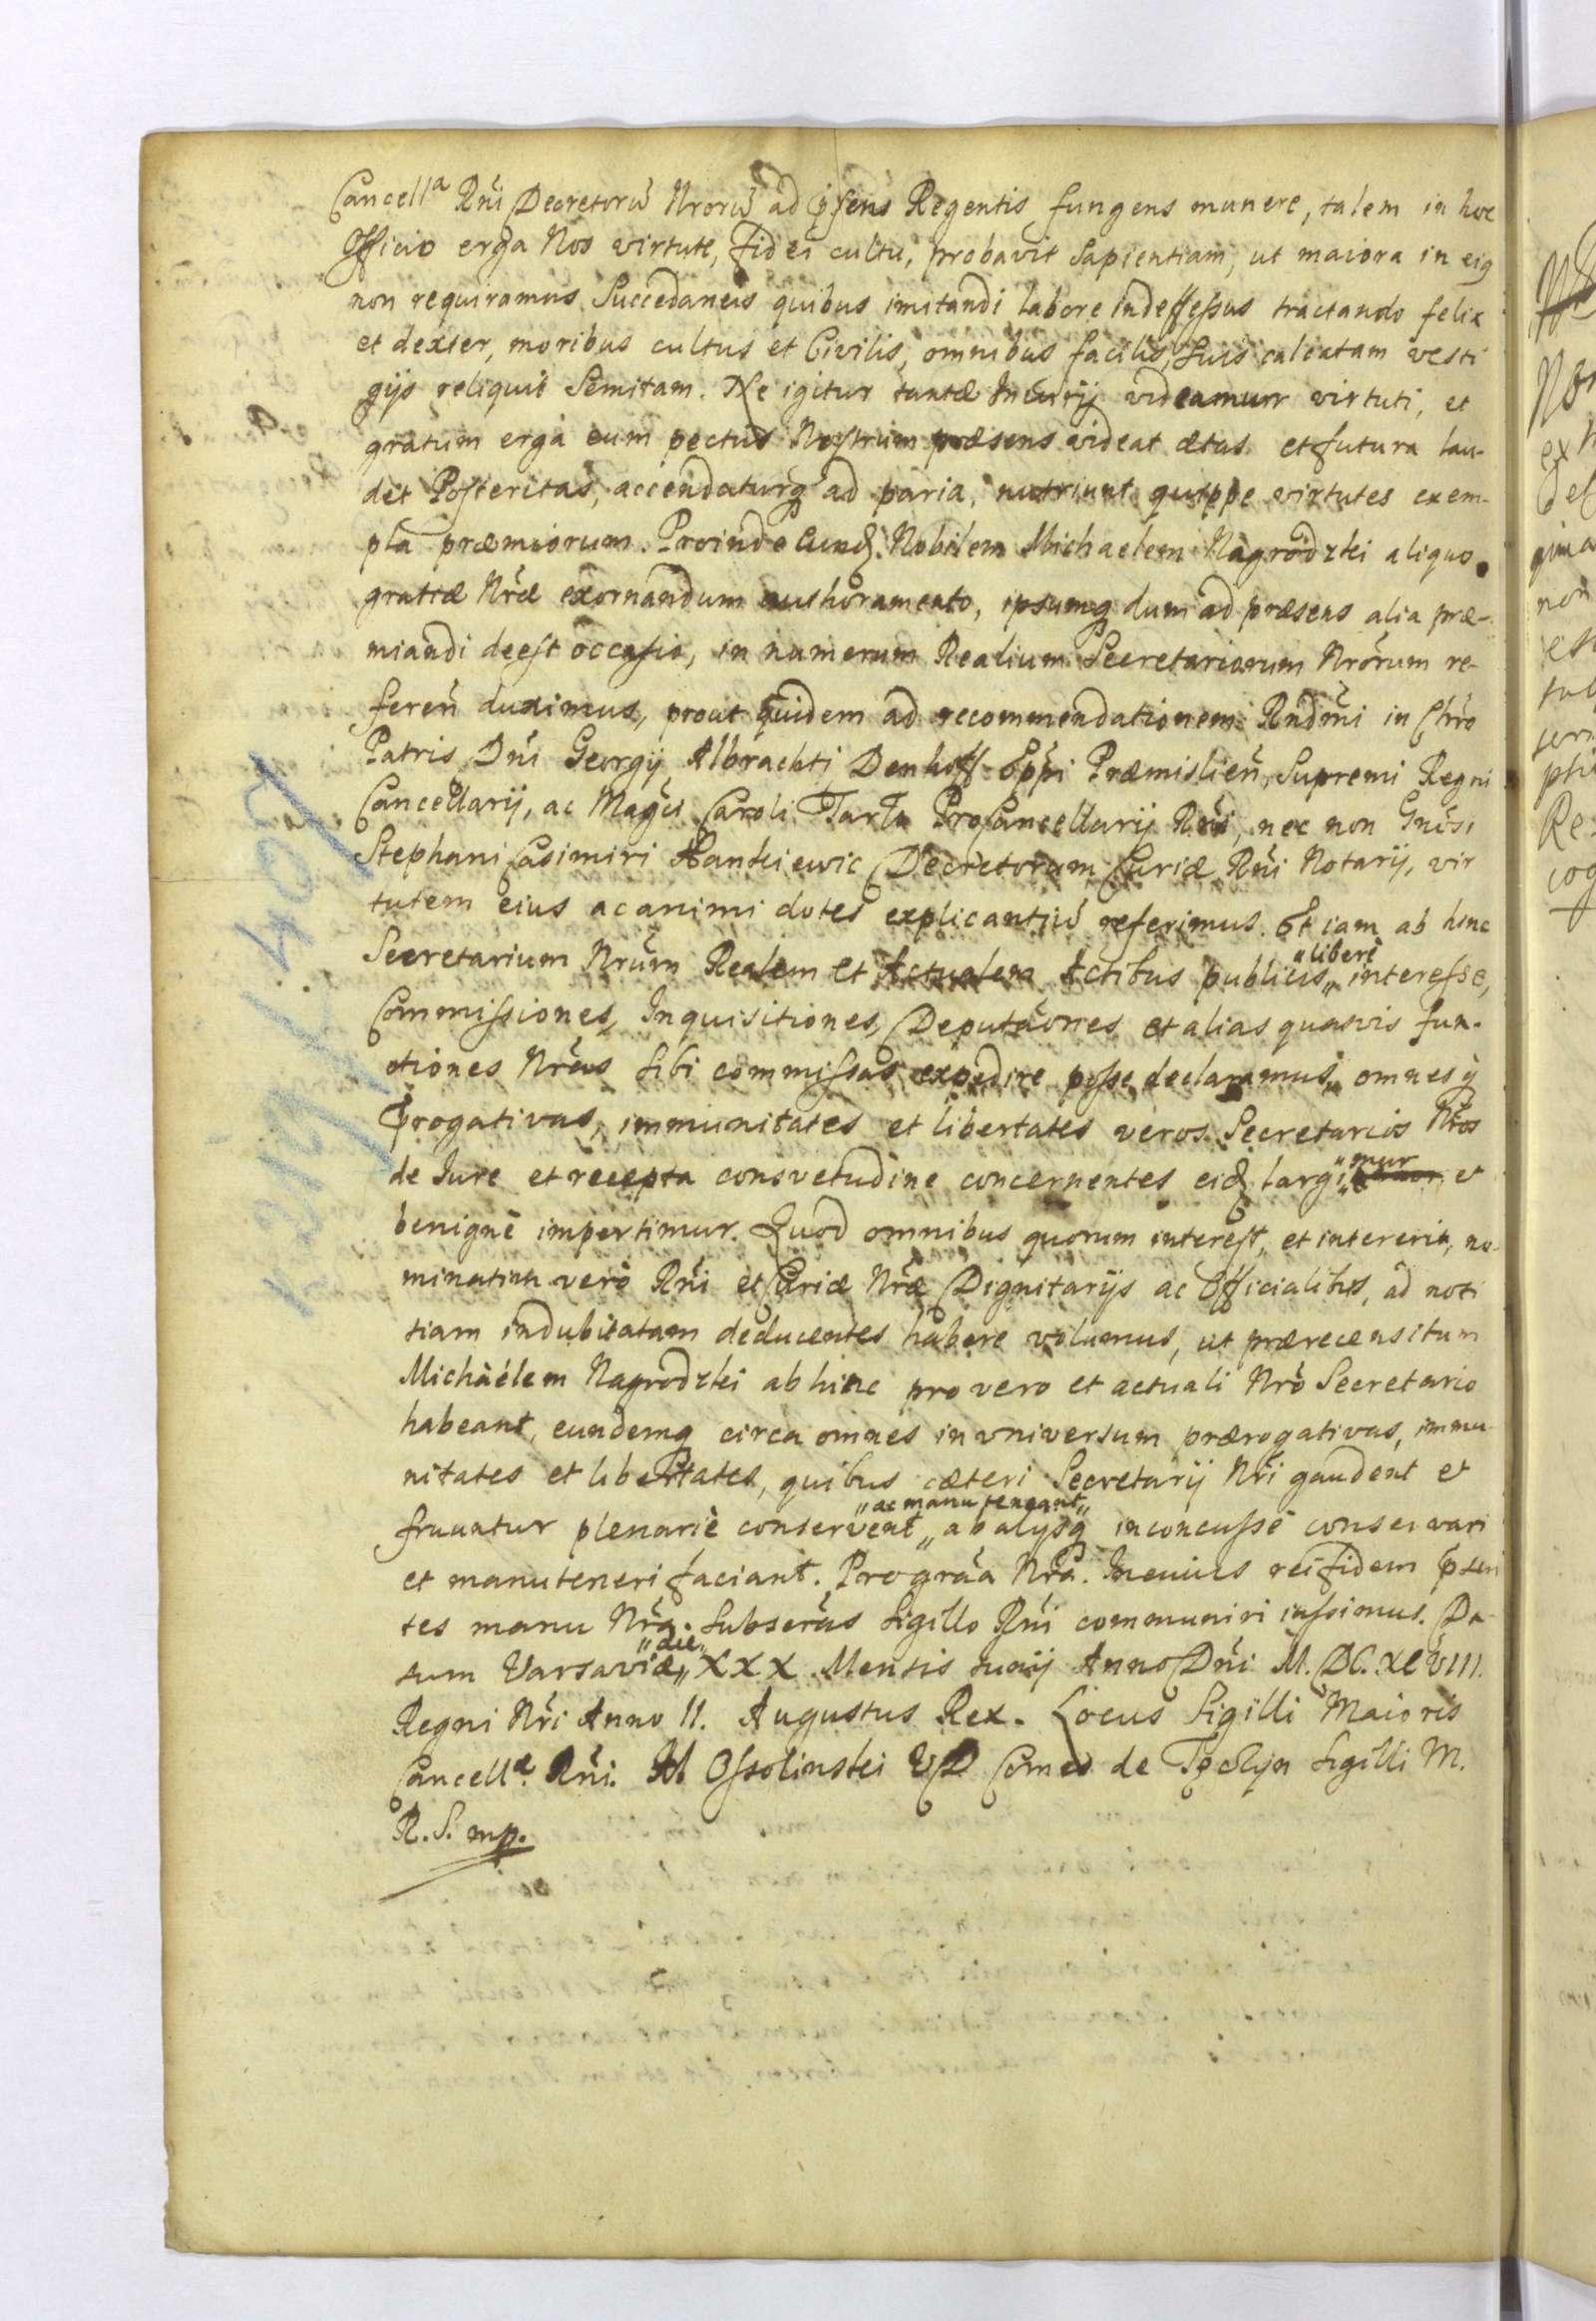 Cancellᵃ Rñi Decretorũ Nrorũ ad p̃sens Regentis fungens munere, talem in hoc
Officio erga Nos virtute, fidei cultu, probavit Sapientiam, ut maiora in eiꝗ
non requiramus Succedaneis quibus imitandi labore indeffessus tractando felix
et dexter, moribus cultus et Civilis, omnibus facilis, suis calcatam vesti
gijs reliquit Semitam. Ne igitur tantæ Incurij videamurr virtuti, et
gratum erga eum pectus Nostrum præsens videat ætas et futura lau-
det Posteritas, accendaturꝗ ad paria, nutriunt quippe virtutes exem-
pla præmiorum. Proinde Eund. Nobilem Michaelem Nagrodzki aliquo
gratiæ Nræ exornandum authoramento, ipsumꝗ dum ad præsens alia præ-
miandi deest occasio, in numerum Realium Secretariorum Nrorum re-
feren̄ duximus, prout quidem ad recommendationem Rndmi in Chro
Patris Dñi Georgij Albrachti Denhoff Eppi Præmislien̄, Supremi Regni
Cancellarij, ac Magci Caroli Tarła ProCancellarij Rñi, nec non Gnosi
Stephani Casimiri Hankiewic Decretorum Curiæ Rñi Notarij, vir
tutem eius ac animi dotes explicantiũ referimus. Et iam ab hinc
Secretarium Nrum Realem et Actualem Actibus publicis „liberè„ interesse,
Commissiones, Inquisitiones, Deputaões et alias quasvis fun-
ctiones Nras sibi commissas expedire posse declaramus, omnesꝗ
p̃rogativas, immunitates et libertates veros Secretarios Nros
de Iure et recepta consvetudine concernentes eid. largi„mur„ et
benignè impertimur. Quod omnibus quorum interest, et intererit, no-
minatim verò Rñi et Curiæ Nræ Dignitarijs ac Officialibus, ad noti
tiam indubitatam deducentes habere volumus, ut prærecensitum
Michaèlem Nagrodzki ab hinc pro vero et actuali Nrò Secretario
habeant, eundemꝗ circa omnes in vniversum prærogativas, immu-
nitates et libertates, quibus cæteri Secretarij Nri gaudent et
fruuntur plenariè conservent „ac manu teneant„ ab alijsꝗ inconcussè conservari
et manuteneri faciant. Pro graã Nra. In cuius rei fidem p̃sen
tes manu Nra. Subscras Sigillo Rñi communiri iussimus. Da-
tum Varsaviæ „die„ XXX Mensis Iunij Anno Dñi M. DC. XCVIII.
Regni Nri Anno II. Augustus Rex. Locus Sigilli Maioris
Cancellᵃ. Rñi. M Ossolinski VD Comes de Tęczyn Sigilli M.
R. S. mp.